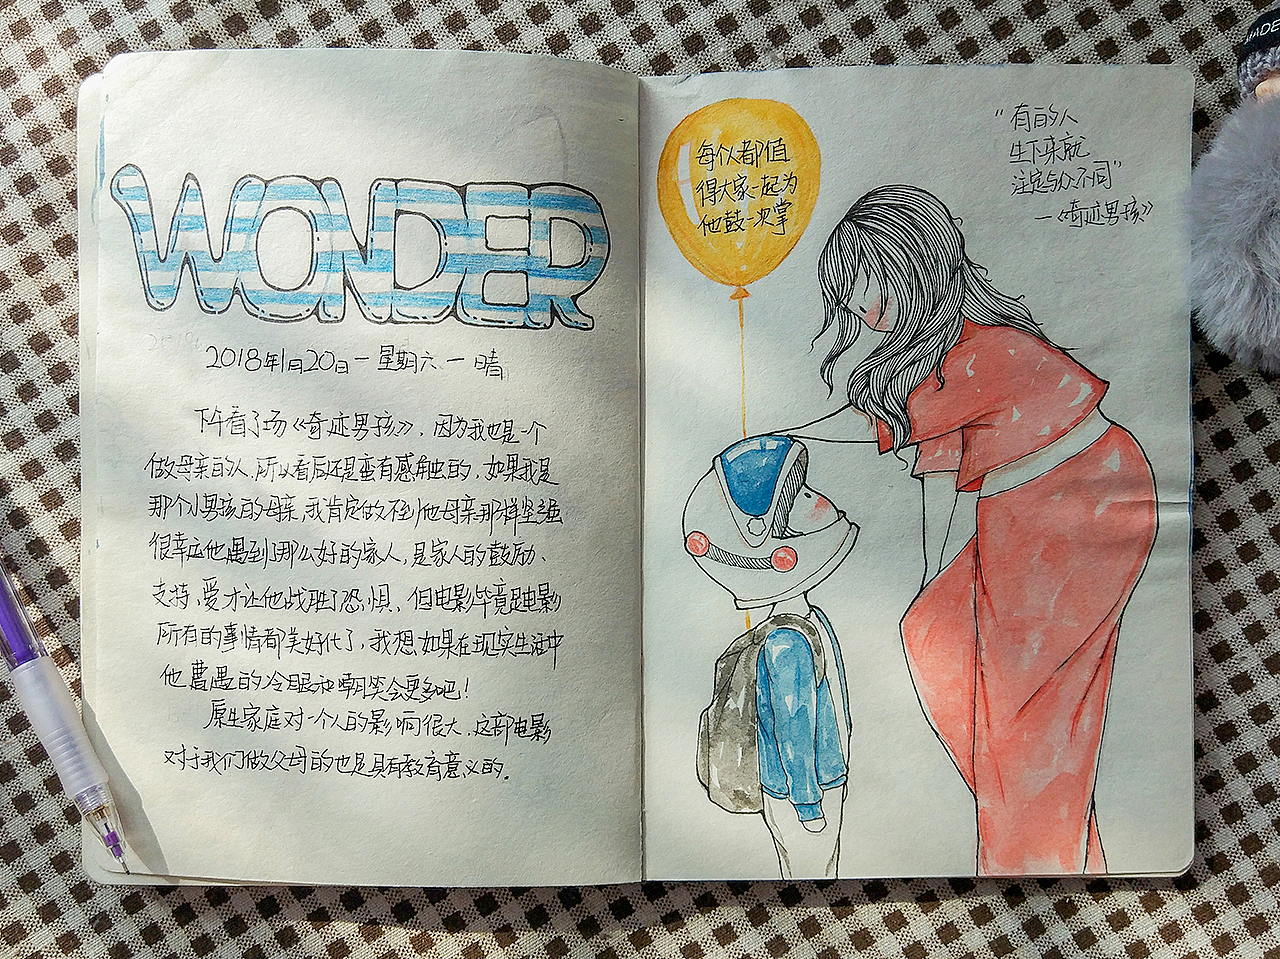 WONDER
2018年1月20日一星期六一晴
下午看了场《奇迹男孩》，因为我也是一个
做母亲的人，所以看后还是蛮有感触的，如果我是
那个小男孩的母亲，我肯定做不到他母亲那样坚强
很幸运他遇到了那么好的家人，是家人的鼓励、
支持、爱才让他战胜了恐惧、但电影毕竟是电影
所有的事情都美好化了，我想如果在现实生活中
他遭遇的冷眼和嘲笑会更多吧！
原生家庭对一个人的影响很大，这部电影
对于我们做父母的也是具有教育意义的。
每个人都值
得大家一起为
他鼓一次掌
“有的人
生下来就
注定与众不同”
—《奇迹男孩》
MADE